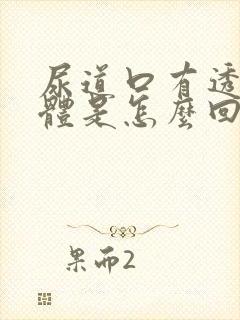 尿道口有透
體是怎麼回
果而2